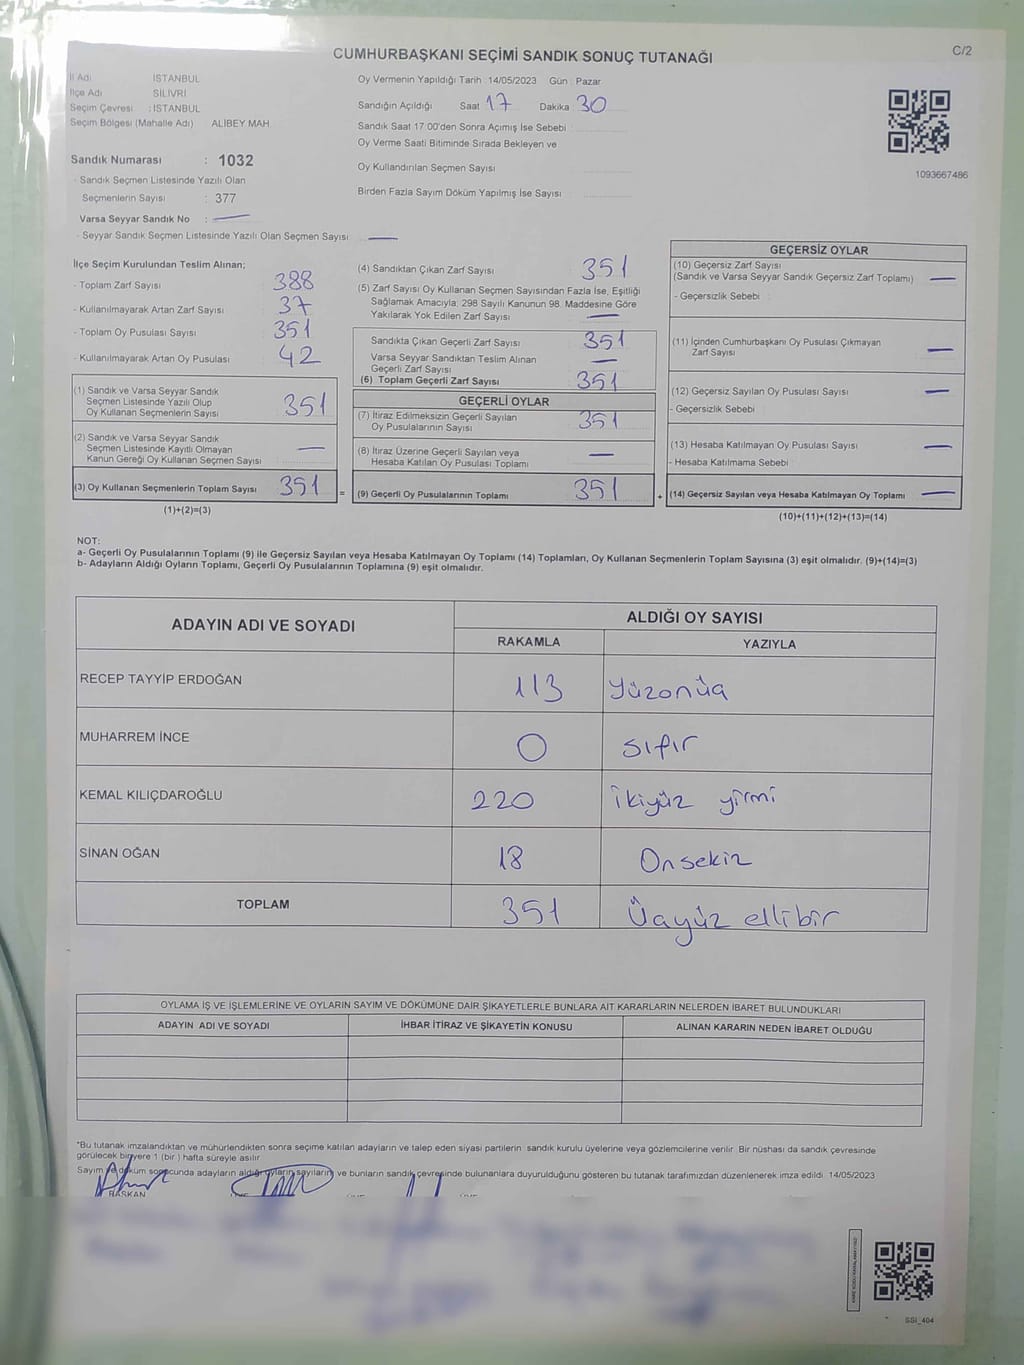 CUMHURBAŞKANI SEÇİMİ SANDIK SONUÇ TUTANAĞI
C/2
İl Adı İSTANBUL
İlçe Adı SİLİVRİ
Seçim Çevresi : İSTANBUL
Seçim Bölgesi (Mahalle Adı) ALİBEY MAH
Sandık Numarası : 1032
- Sandık Seçmen Listesinde Yazılı Olan
Seçmenlerin Sayısı : 377
Varsa Seyyar Sandık No : —
- Seyyar Sandık Seçmen Listesinde Yazılı Olan Seçmen Sayısı —
Oy Vermenin Yapıldığı Tarih :14/05/2023 Gün : Pazar
Sandığın Açıldığı Saat 17 Dakika : 30
Sandık Saat 17:00'den Sonra Açımış İse Sebebi :
Oy Verme Saati Bitiminde Sırada Bekleyen ve
Oy Kullandırılan Seçmen Sayısı
Birden Fazla Sayım Döküm Yapılmış İse Sayısı
1093667486
İlçe Seçim Kurulundan Teslim Alınan;
- Toplam Zarf Sayısı 388
- Kullanılmayarak Artan Zarf Sayısı 37
- Toplam Oy Pusulası Sayısı 351
- Kullanılmayarak Artan Oy Pusulası 42
(1) Sandık ve Varsa Seyyar Sandık
Seçmen Listesinde Yazılı Olup
Oy Kullanan Seçmenlerin Sayısı 351
(2) Sandık ve Varsa Seyyar Sandık
Seçmen Listesinde Kayıtlı Olmayan
Kanun Gereği Oy Kullanan Seçmen Sayısı —
(3) Oy Kullanan Seçmenlerin Toplam Sayısı 351 =
(1)+(2)=(3)
(4) Sandıktan Çıkan Zarf Sayısı 351
(5) Zarf Sayısı Oy Kullanan Seçmen Sayısından Fazla İse, Eşitliği
Sağlamak Amacıyla; 298 Sayılı Kanunun 98. Maddesine Göre
Yakılarak Yok Edilen Zarf Sayısı —
Sandıkta Çıkan Geçerli Zarf Sayısı 351
Varsa Seyyar Sandıktan Teslim Alınan
Geçerli Zarf Sayısı —
(6) Toplam Geçerli Zarf Sayısı 351
GEÇERLİ OYLAR
(7) İtiraz Edilmeksizin Geçerli Sayılan
Oy Pusulalarının Sayısı 351
(8) İtiraz Üzerine Geçerli Sayılan veya
Hesaba Katılan Oy Pusulası Toplamı —
(9) Geçerli Oy Pusulalarının Toplamı 351 +
GEÇERSİZ OYLAR
(10) Geçersiz Zarf Sayısı
(Sandık ve Varsa Seyyar Sandık Geçersiz Zarf Toplamı) —
- Geçersizlik Sebebi :
(11) İçinden Cumhurbaşkanı Oy Pusulası Çıkmayan
Zarf Sayısı —
(12) Geçersiz Sayılan Oy Pusulası Sayısı —
- Geçersizlik Sebebi
(13) Hesaba Katılmayan Oy Pusulası Sayısı —
- Hesaba Katılmama Sebebi
(14) Geçersiz Sayılan veya Hesaba Katılmayan Oy Toplamı —
(10)+(11)+(12)+(13)=(14)
NOT:
a- Geçerli Oy Pusulalarının Toplamı (9) ile Geçersiz Sayılan veya Hesaba Katılmayan Oy Toplamı (14) Toplamları, Oy Kullanan Seçmenlerin Toplam Sayısına (3) eşit olmalıdır. (9)+(14)=(3)
b- Adayların Aldığı Oyların Toplamı, Geçerli Oy Pusulalarının Toplamına (9) eşit olmalıdır.
ADAYIN ADI VE SOYADI
ALDIĞI OY SAYISI
RAKAMLA YAZIYLA
RECEP TAYYİP ERDOĞAN 113 Yüzonüç
MUHARREM İNCE 0 sıfır
KEMAL KILIÇDAROĞLU 220 ikiyüz yirmi
SİNAN OĞAN 18 Onsekiz
TOPLAM 351 Üçyüz ellibir
OYLAMA İŞ VE İŞLEMLERİNE VE OYLARIN SAYIM VE DÖKÜMÜNE DAİR ŞİKAYETLERLE BUNLARA AİT KARARLARIN NELERDEN İBARET BULUNDUKLARI
ADAYIN ADI VE SOYADI İHBAR İTİRAZ VE ŞİKAYETİN KONUSU ALINAN KARARIN NEDEN İBARET OLDUĞU
*Bu tutanak imzalandıktan ve mühürlendikten sonra seçime katılan adayların ve talep eden siyasi partilerin sandık kurulu üyelerine veya gözlemcilerine verilir. Bir nüshası da sandık çevresinde
görülecek bir yere 1 (bir ) hafta süreyle asılır
Sayım ve döküm sonucunda adayların aldığı oyların sayıların ve bunların sandık çevresinde bulunanlara duyurulduğunu gösteren bu tutanak tarafımızdan düzenlenerek imza edildi 14/05/2023
BAŞKAN
SSİ_404